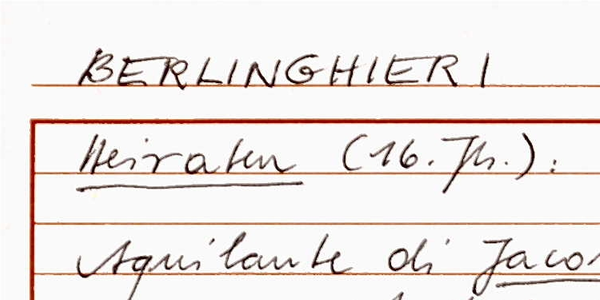 BERLINGHIERI
Heiraten (16. Jh.):
Aquilante di Jaco